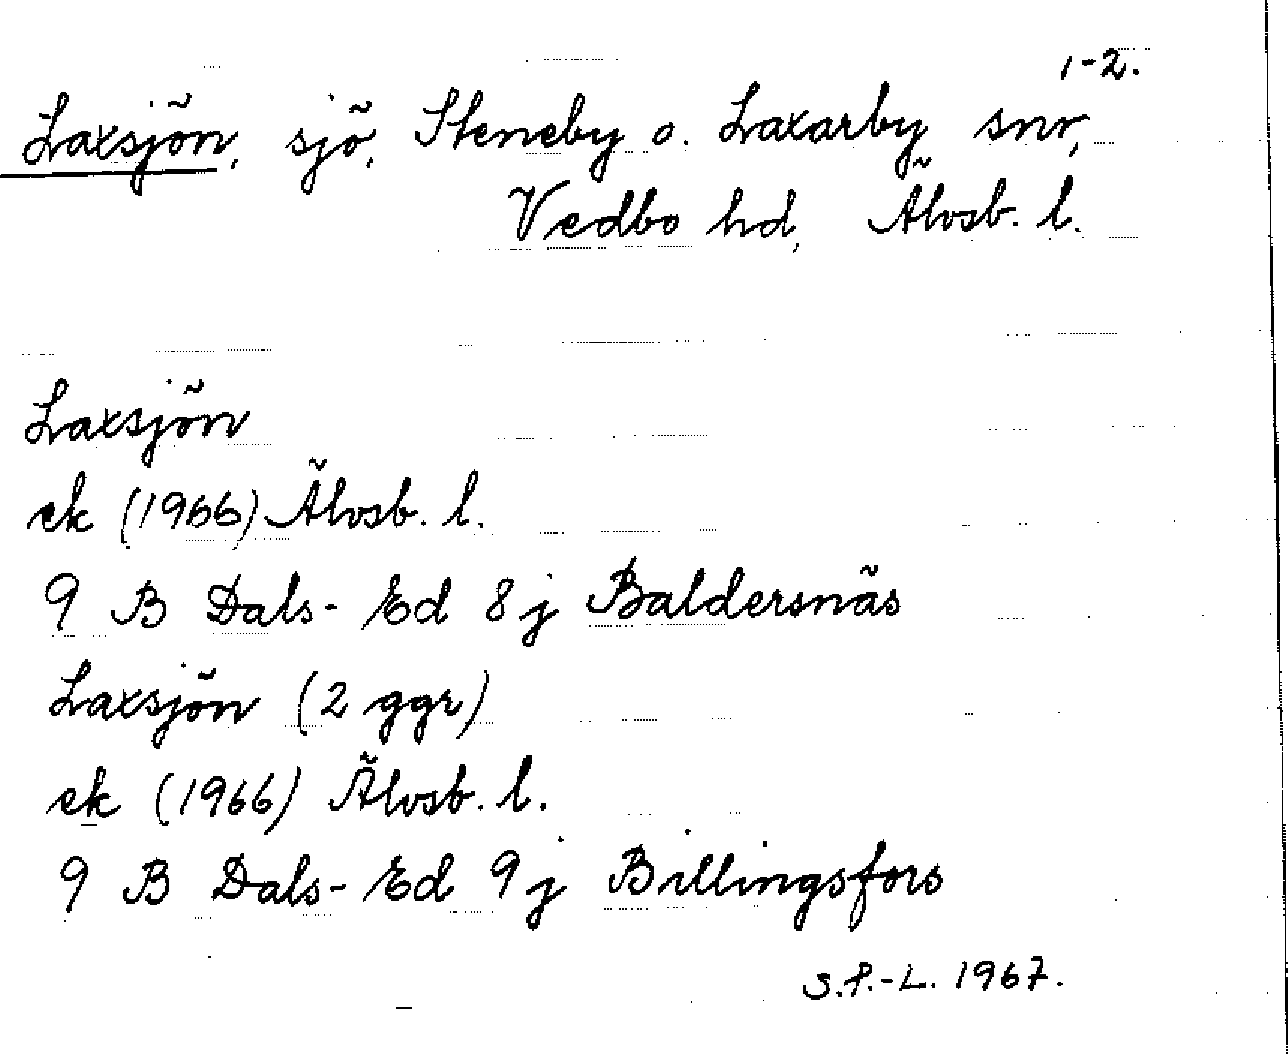 1-2.
Laxsjön, sjö, Steneby o. Laxarby snr,
Vedbo hd, Älvsb. l.
Laxsjön
ek (1966) Älvsb. l.
9 B Dals-Ed 8j Baldersnäs
Laxsjön (2 ggr)
ek (1966) Älvsb. l.
9 B Dals-Ed 9j Billingsfors
S.P.-L. 1967.